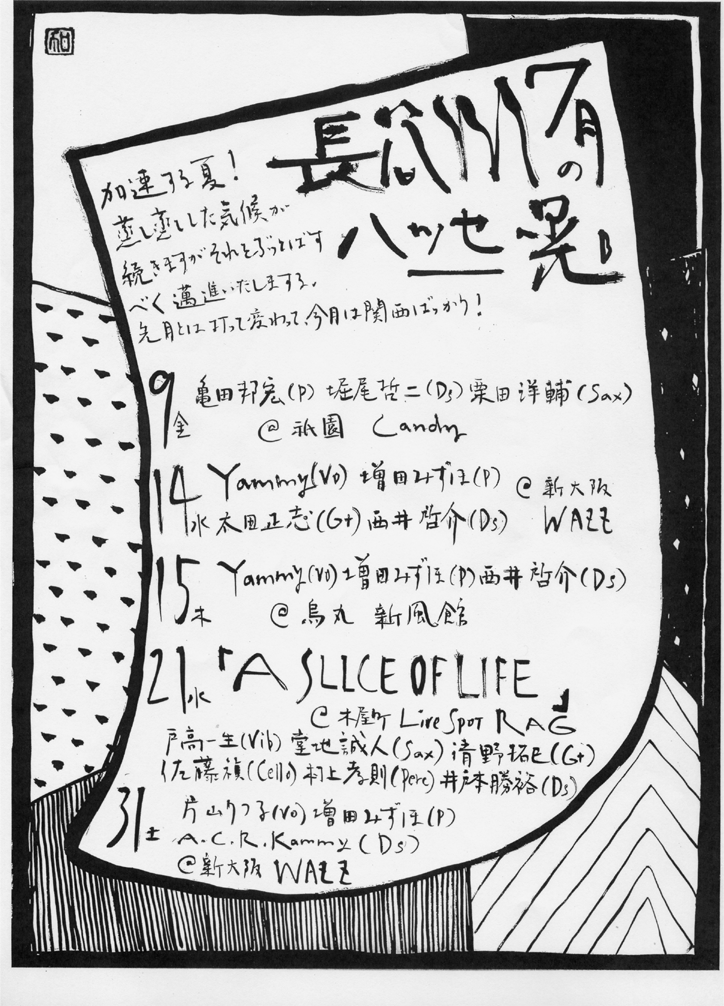 7月の
長谷川晃
ハッセ
加速する夏!
蒸し蒸しした気候が
続きますがそれをぶっとばす
べく邁進いたしまする。
先月とは打って変わって、今月は関西ばっかり!
9金 亀田邦宏(P) 堀尾哲二(Ds) 栗田洋輔(Sax)
@祇園 Candy
14水 Yammy(Vo) 増田みずほ(P) @新大阪
太田正志(Gt) 西井哲介(Ds) WAZZ
15木 Yammy(Vo) 増田みずほ(P) 西井哲介(Ds)
@烏丸 新風館
21水 「A SLICE OF LIFE」
@木屋町 Live Spot RAG
戸高一生(Vib) 堂地誠人(Sax) 清野拓巳(Gt)
佐藤禎(Cello) 村上孝則(Perc) 井戸本勝裕(Ds)
31土 片山りつ子(Vo) 増田みずほ(P)
A.C.R.Kammy(Ds)
@新大阪 WAZZ